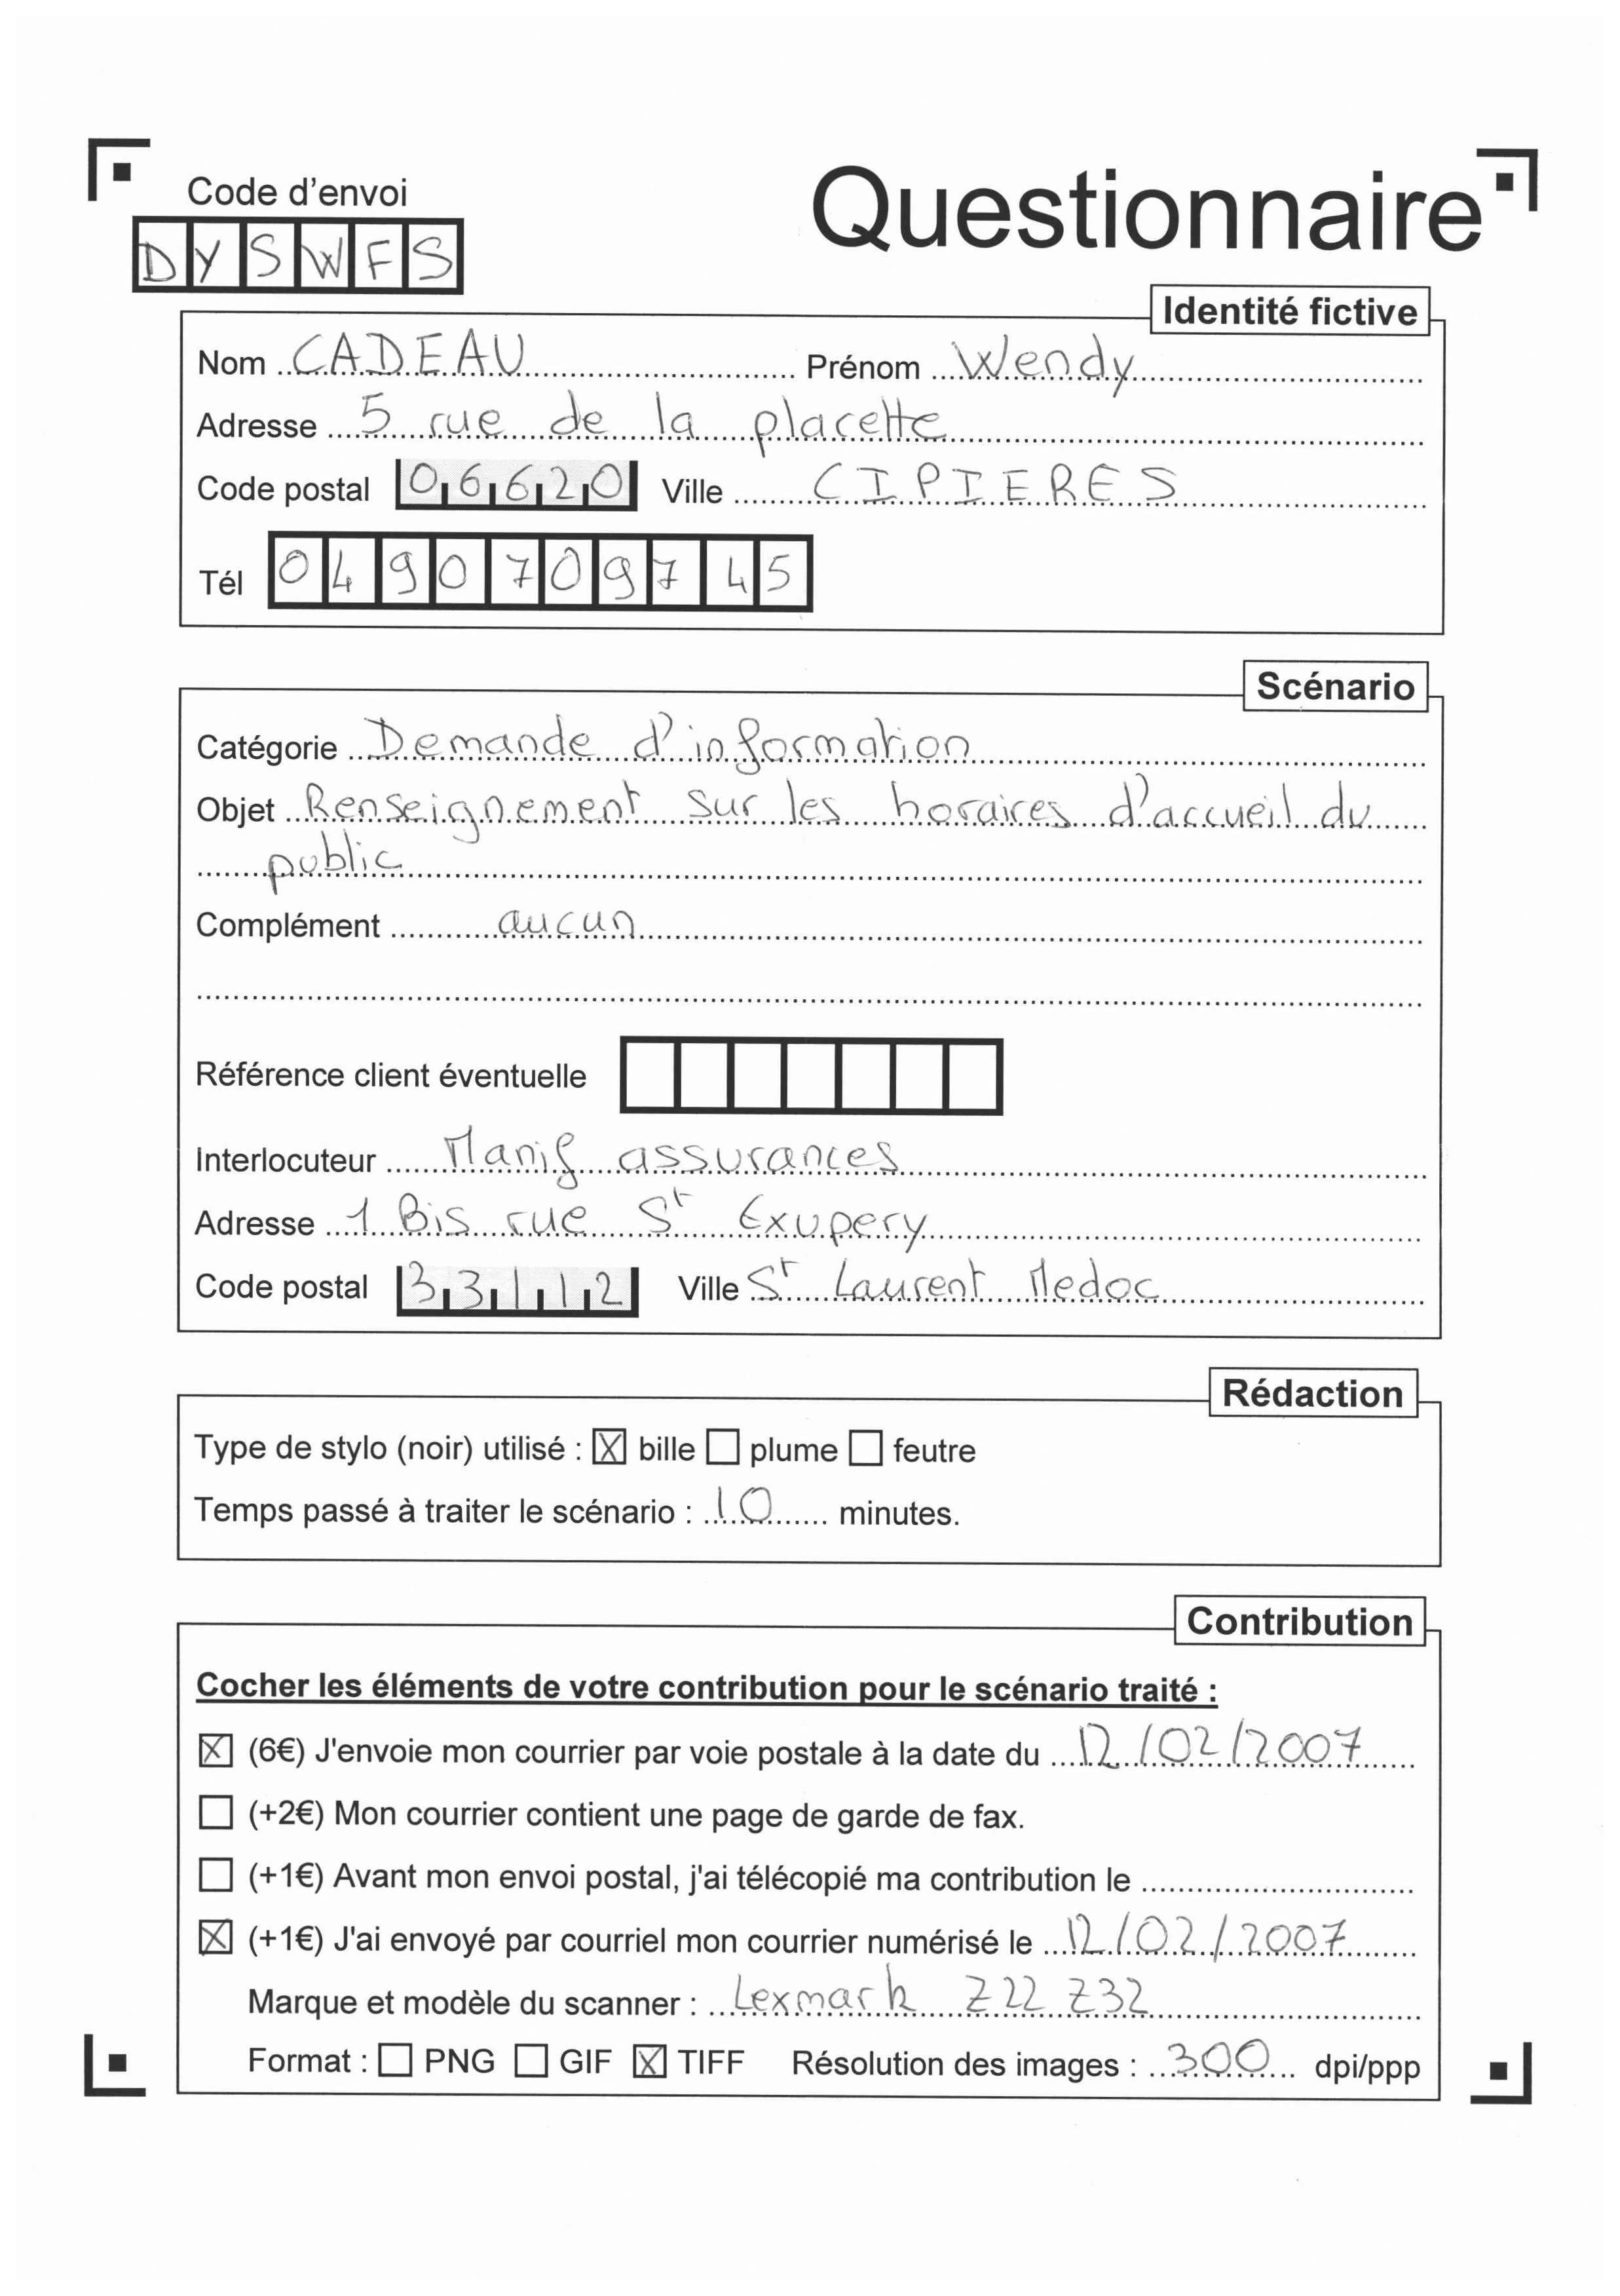 Code d'envoi
Questionnaire
DYSWFS
Identité fictive
Nom CADEAU Prénom Wendy
Adresse 5 rue de la placette
Code postal 06620 Ville CIPIERES
Tél 0490709745
Scénario
Catégorie Demande d'information
Objet Renseignement sur les horaires d'accueil du
public
Complément aucun
Référence client éventuelle
Interlocuteur Manif assurances
Adresse 1 Bis rue St Exupery
Code postal 33112 Ville St Laurent Medoc
Rédaction
Type de stylo (noir) utilisé : ☒ bille ☐ plume ☐ feutre
Temps passé à traiter le scénario : 10 minutes.
Contribution
Cocher les éléments de votre contribution pour le scénario traité :
☒ (6€) J'envoie mon courrier par voie postale à la date du 12/02/2007
☐ (+2€) Mon courrier contient une page de garde de fax.
☐ (+1€) Avant mon envoi postal, j'ai télécopié ma contribution le
☒ (+1€) J'ai envoyé par courriel mon courrier numérisé le 12/02/2007
Marque et modèle du scanner : Lexmark Z22 Z32
Format : ☐ PNG ☐ GIF ☒ TIFF Résolution des images : 300 dpi/ppp